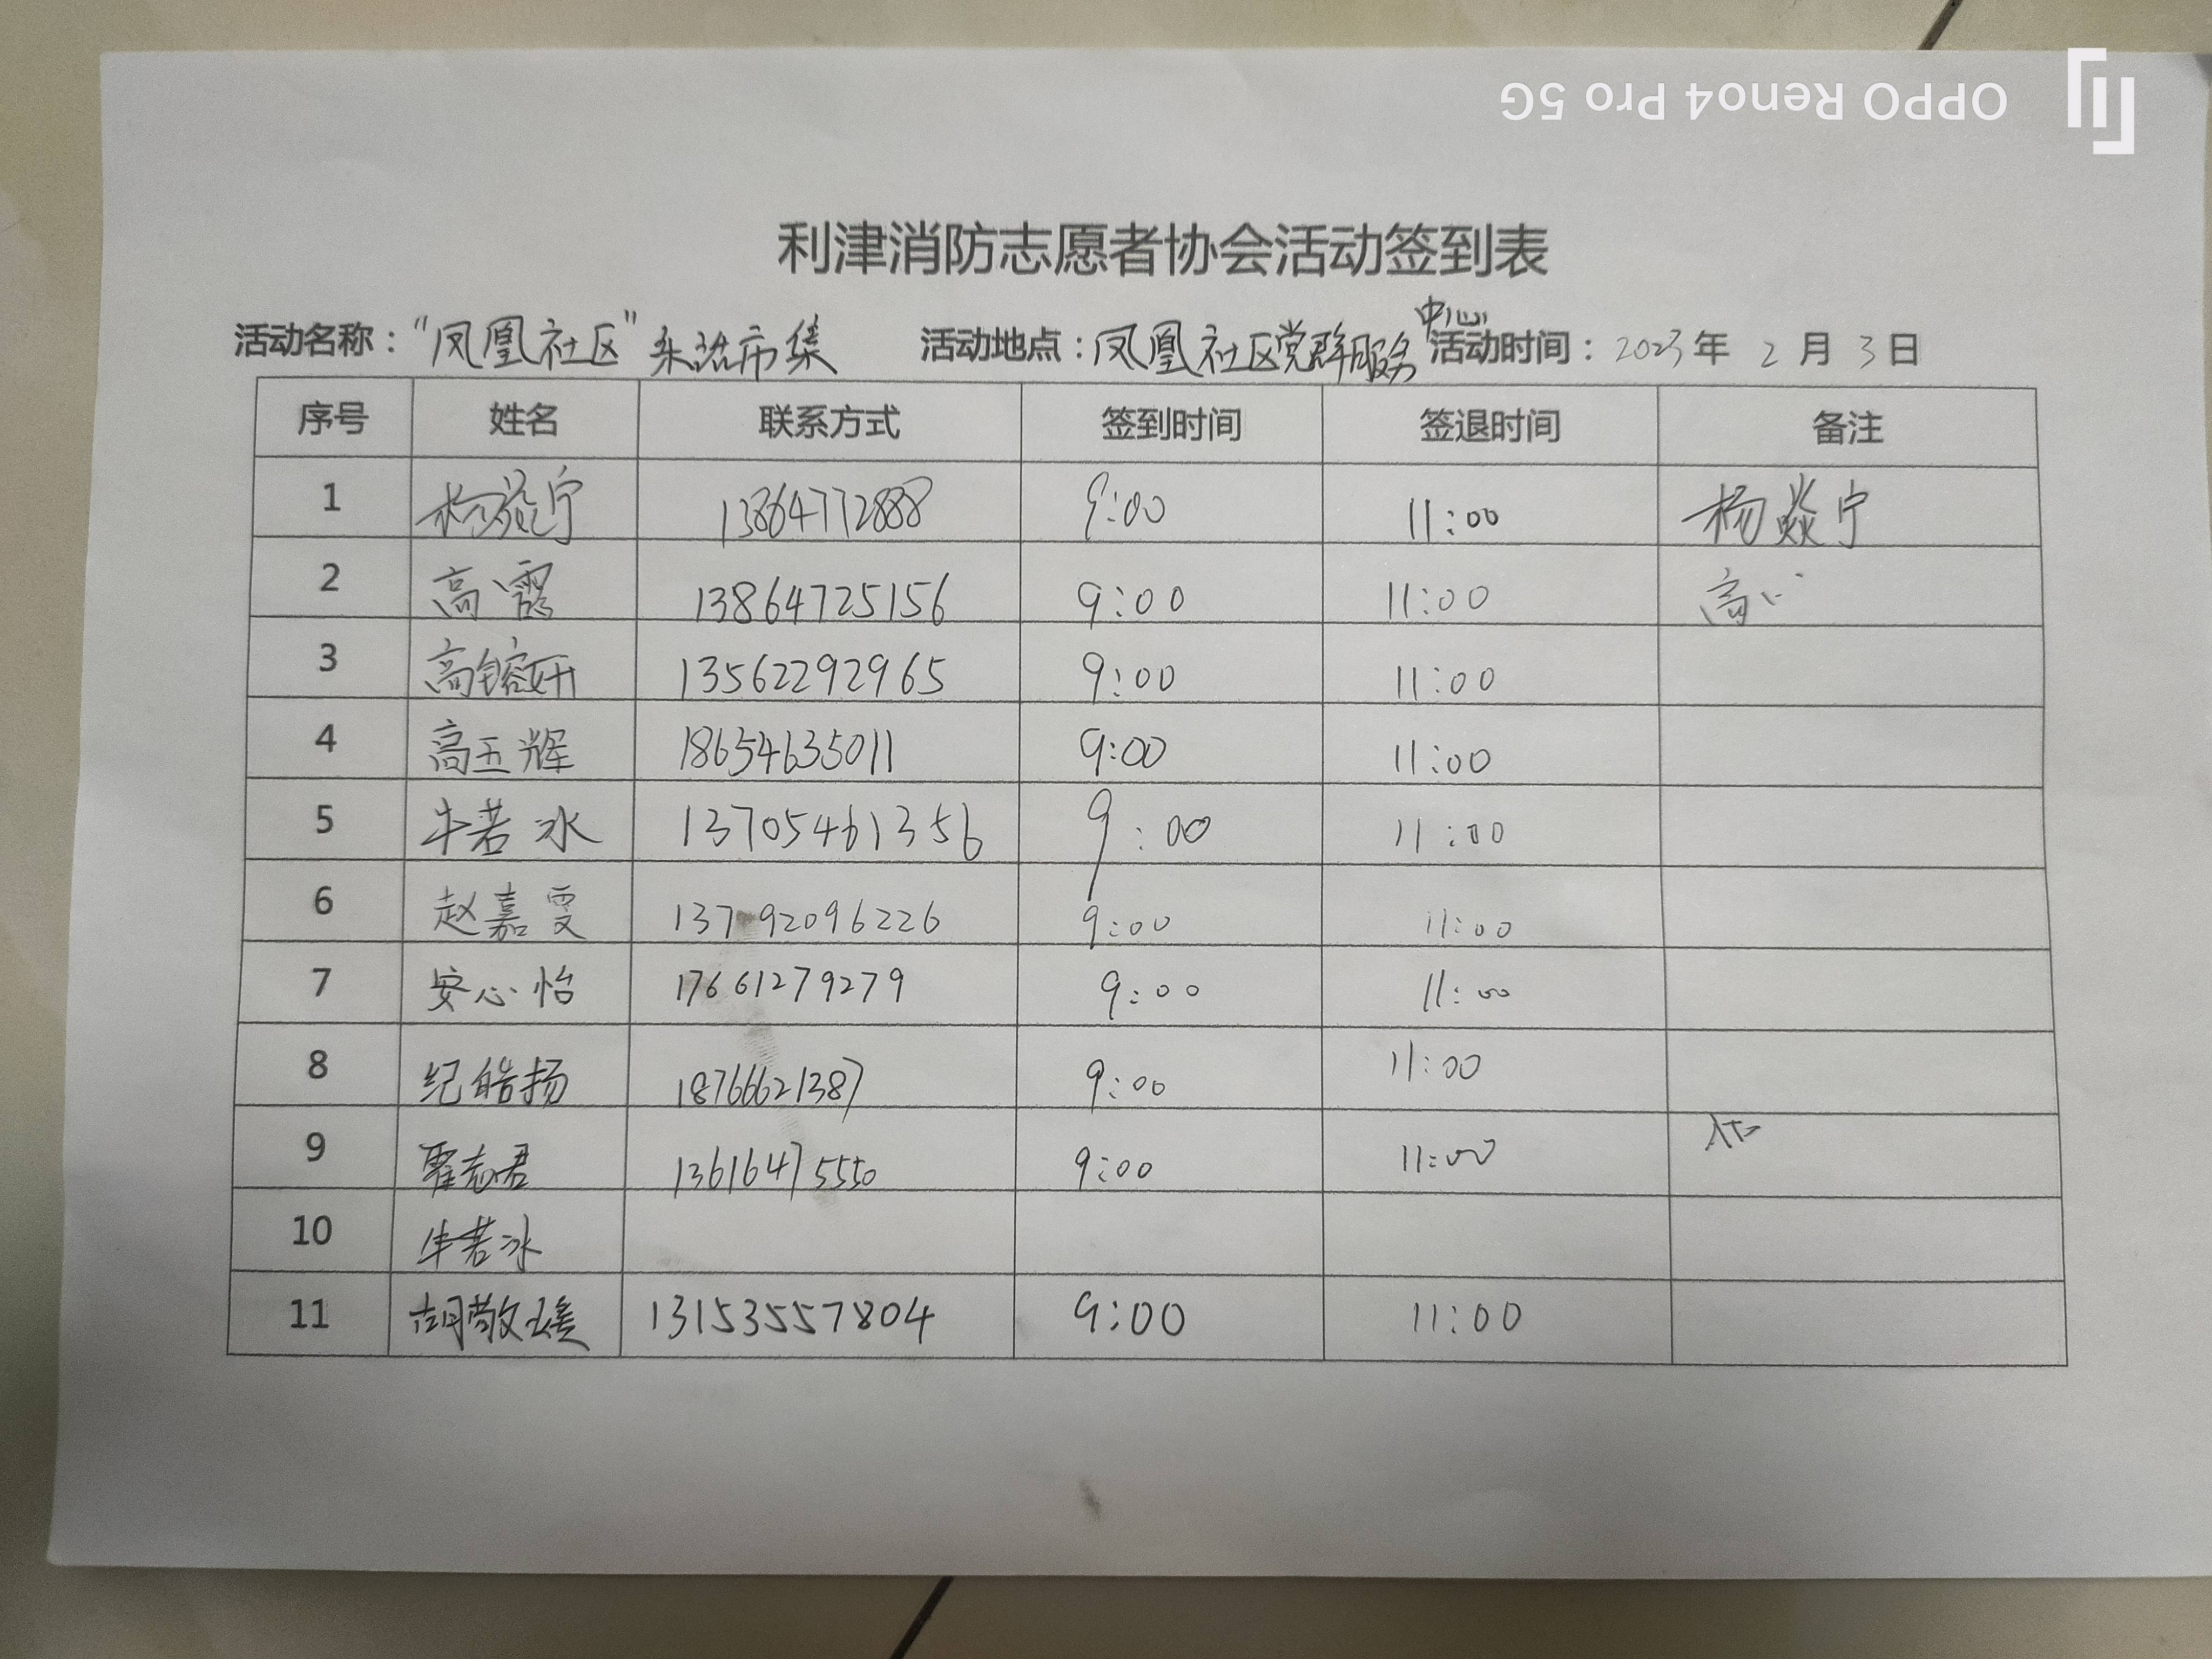 OPPO Reno4 Pro 5G
利津消防志愿者协会活动签到表
活动名称："凤凰社区"乐活市集 活动地点：凤凰社区党群服务中心 活动时间：2023年 2月 3日
序号 姓名 联系方式 签到时间 签退时间 备注
1 杨焱宁 13864772888 9:00 11:00 杨焱宁
2 高霞 13864725156 9:00 11:00 高
3 高镕妍 13562292965 9:00 11:00
4 高玉辉 18654635011 9:00 11:00
5 牛若冰 13705461356 9:00 11:00
6 赵嘉雯 13792096226 9:00 11:00
7 安心怡 17661279279 9:00 11:00
8 纪皓扬 18766621387 9:00 11:00
9 霍志君 13616475550 9:00 11:00
10 牛若冰
11 胡敬瑗 13153557804 9:00 11:00